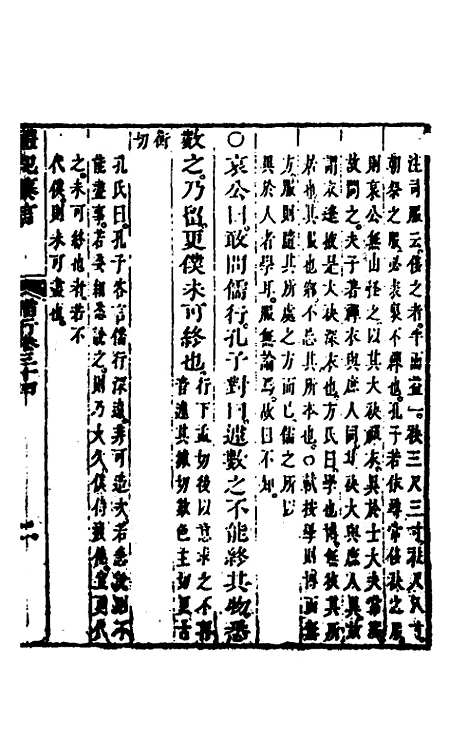 注司服云侈之者半而益一袂三尺三寸袪尺八寸
朝祭之服必表裏不禪也孔子若依尋常侈袂之服
則哀公無由怪之以其大袂禪衣異於士大夫常服
故問之夫子著禪衣與庶人同其袂大與庶人異故
謂衣逢掖是大袂深衣也方氏曰學也博無彼異所
若也其服也鄉不忘其所本也○ 按學則博而無
方服則隨其所處之方而已儒之所以
異於人者學耳服無論焉故曰不知
○哀公曰敢問儒行孔子對曰遽數之不能終其物悉
數之乃留更僕未可終也行下孟切後以意求之不
音遽其據切數色主切更古
衡切
孔氏曰孔子答言儒行深遠非可造次若急說則不
能盡事若委細悉說之則乃大久僕侍疲倦宜更代
之未可終也若不
代僕則未可盡也
禮記集言 儒行卷三十四